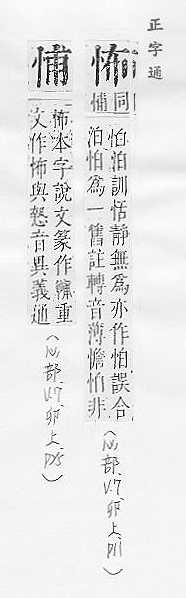 正字通
怖
同
悑
怕怕訓恬靜無爲亦作怕誤合
泊怕爲一舊註轉音薄憺怕非
(心部、V.7、卯上、p11)
悑
怖本字說文篆作重
文作怖與音異義通
(心部、V.7、卯上、p25)